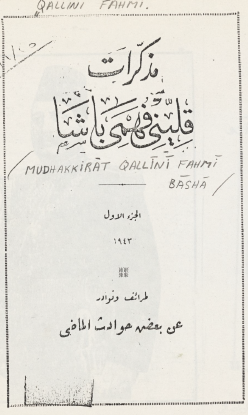 QALLINI FAHMI.
مذكرات
قلينى فهمى باشا
MUDHAKKIRĀT QALLĪNĪ FAHMĪ
BĀSHĀ
الجزء الاول
١٩٤٣
طرائف ونوادر
عن بعض حوادث الماضى